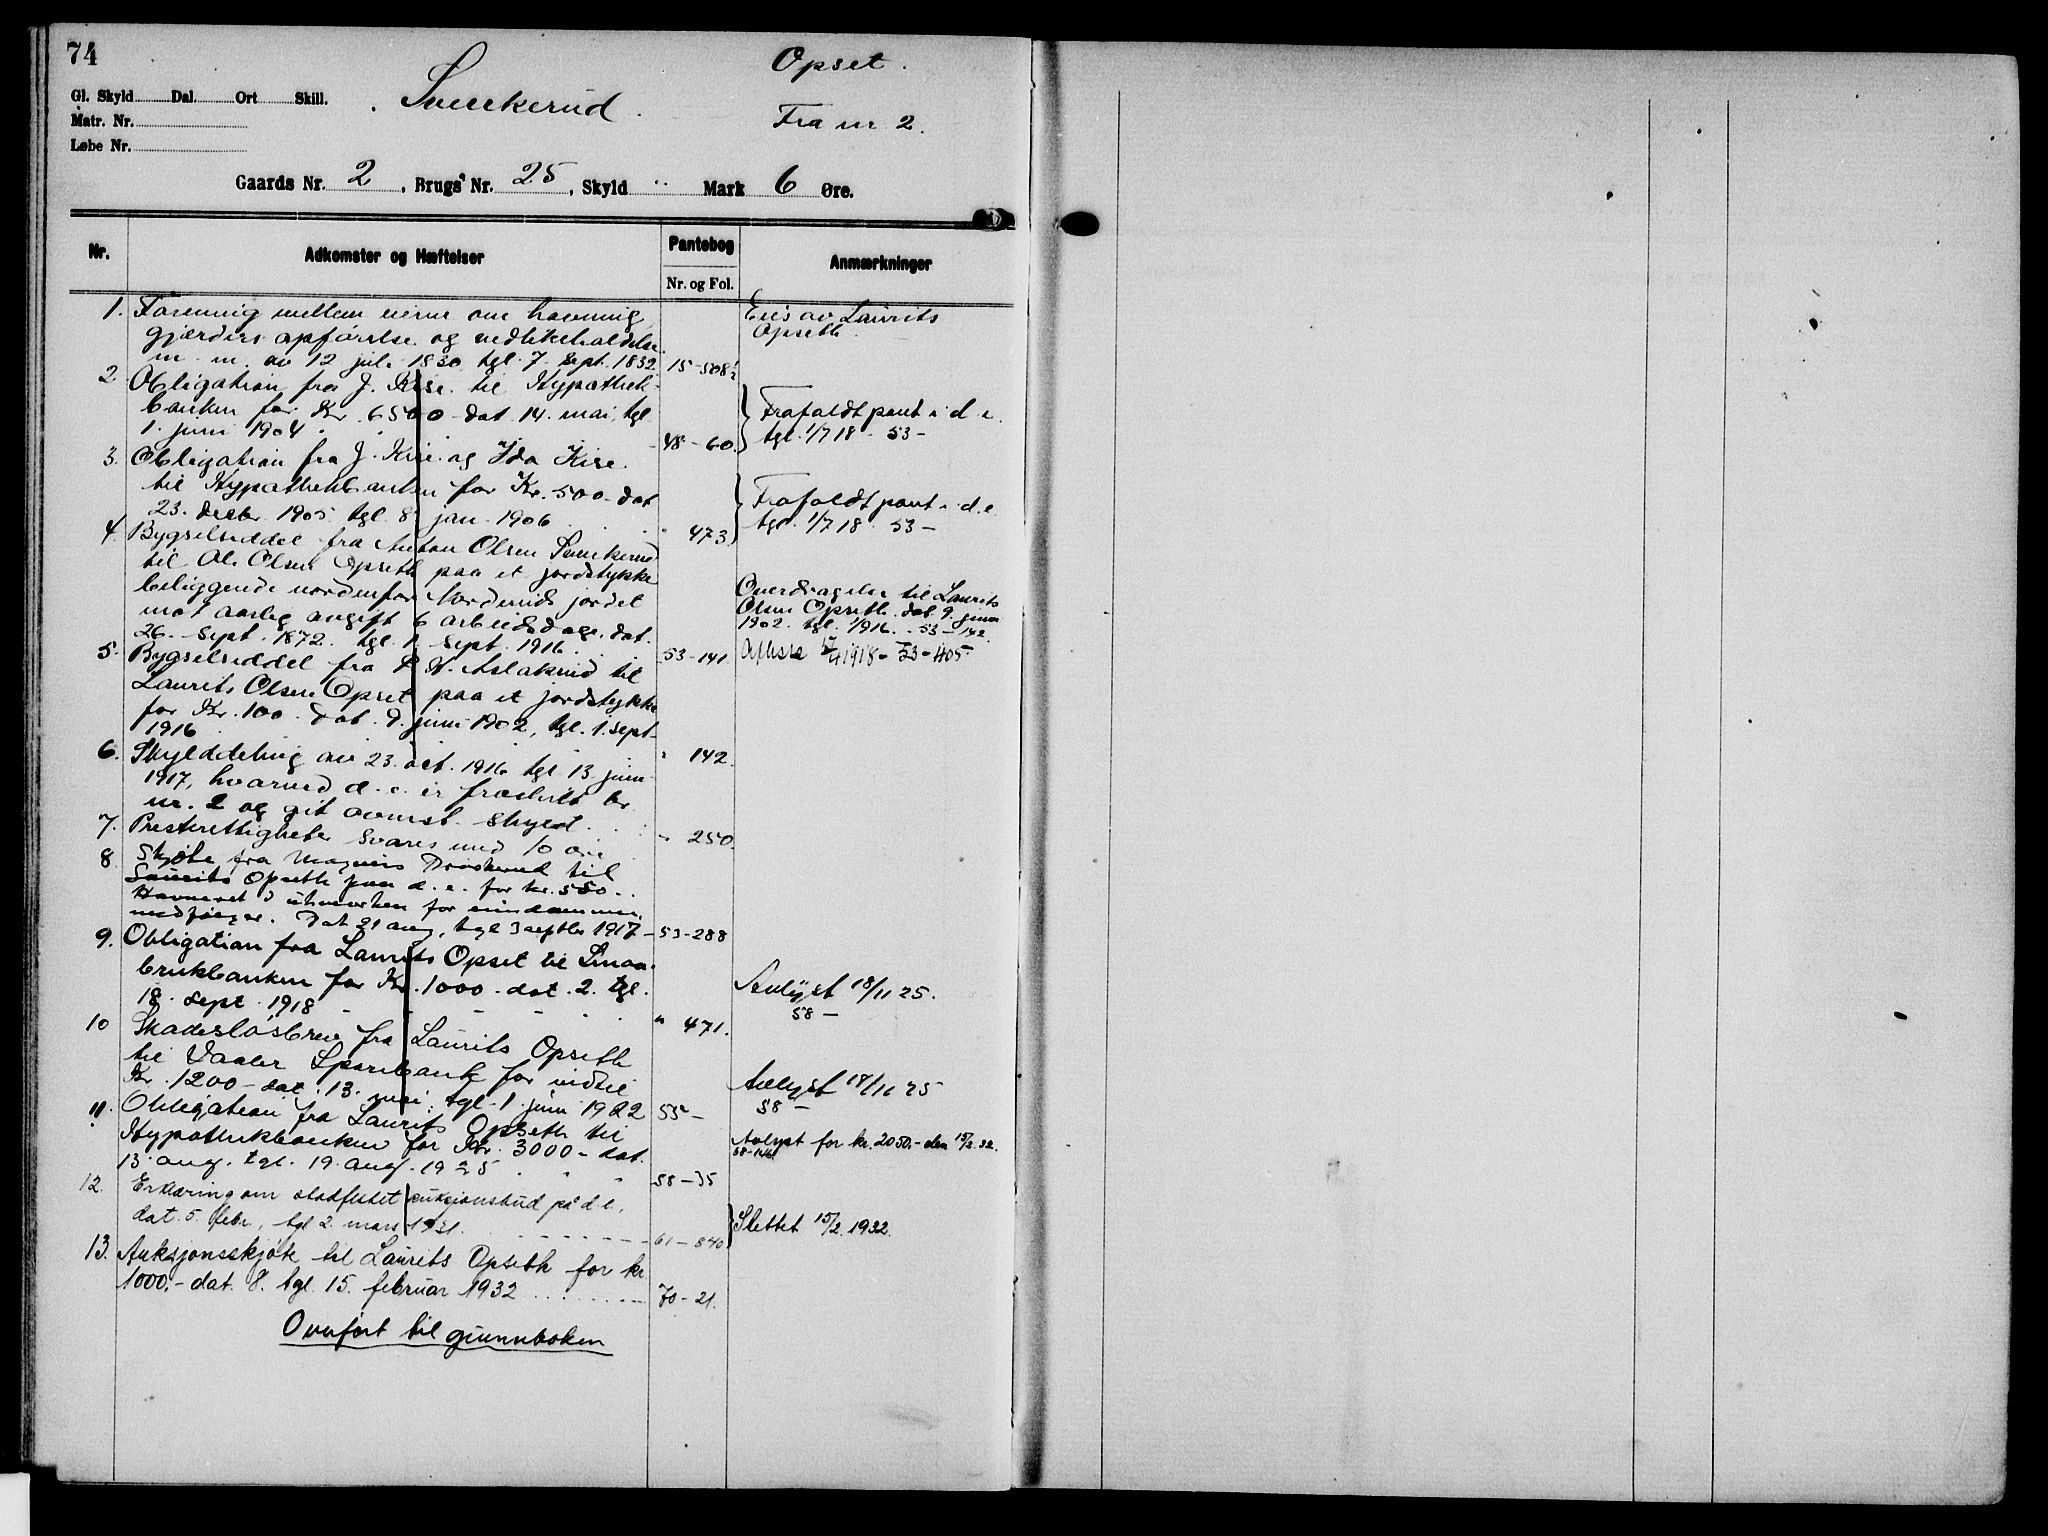 74
Opset.
Gl. Skyld Dal. Ort Skill.
Svenkerud.
Matr. Nr.
Fra nr 2.
Løbe Nr.
Gaards Nr. 2, Brugs Nr. 25, Skyld " Mark 6 Øre.
Nr.
Adkomster og Hæftelser
Pantebog
Nr. og Fol.
Anmærkninger
1. Forening mellem eierne om havning,
gjærders opførelse og vedlikeholdelse
m. m. av 12 juli 1830, tgl. 7. sept. 1832. 15-508½
Eies av Laurits
Opseth
2 Obligation fra J. Kise til Hypothek-
banken for Kr. 6500 dat. 14. mai, tgl.
1. juni 1904 48-60.
Frafaldt pant i d. e.
tgl. 1/7 18. 53-
3. Obligation fra J. Kise og Ida Kise
til Hypothekbanken for Kr. 500 dat
23. decbr. 1905 tgl. 8 jan. 1906 " 473.
Frafaldt pant i d. e.
tgl. 1/7 18. 53-
4. Bygselseddel fra Anton Olsen Svenkerud
til Ole Olsen Opseth paa et jordstykke
beliggende nordenfor Norderuds jordet
mot aarlig avgift 6 arbeidsdage, dat.
26. sept. 1872. tgl. 1 sept. 1916. 53-141
Overdragelse til Laurits
Olsen Opseth dat 9. juni
1902. tgl. 1/9 16. 53-142.
5. Bygselseddel fra H. Aslakrud til
Laurits Olsen Opset paa et jordstykke
for Kr. 100. Dat. 9. juni 1902, tgl. 1. sept.
1916 " 142.
Aflyst 1918 - 53-405.
6. Skylddeling av 23. oct. 1916 tgl. 13. juni
1917, hvorved d. e. er fraskilt br.
nr. 2 og git ovenst. skyld. " 250.
7. Presterettigheter svares med 10 øre
8 Skjøte fra Magnus Braskerud til
Laurits Opseth paa d. e. for kr. 550.
Havneret i utmarken for eiendommen
medfølger. Dat 21 aug, tgl 3 septbr 1917 - 53-288
9. Obligation fra Laurits Opset til Smaa-
brukbanken for Kr. 1000 - dat. 2. tgl.
18. sept. 1918 " 471.
Avlyst 18/11 25.
58 -
10 Skadesløsbrev fra Laurits Opseth
til Vaaler Sparebank for indtil
Kr. 1200 - dat. 13. mai, tgl. 1 juni 1922 55 -
Avlyst 18/11 25
58 -
11. Obligation fra Laurits Opseth til
Hypothekbanken for Kr. 3000 - dat.
13. aug. tgl. 19. aug. 1925 58-35
Avlyst for kr. 2050.- den 15/2. 32.
12. Erklæring om stadfestet auksjonsbud på d. e.,
dat. 5. febr., tgl 2. mars 1931. 61-840
Slettet 15/2. 1932.
13. Auksjonsskjøte til Laurits Opseth for kr
1000,- dat. 8. tgl. 15. februar 1932 70-21.
Overført til grunnboken